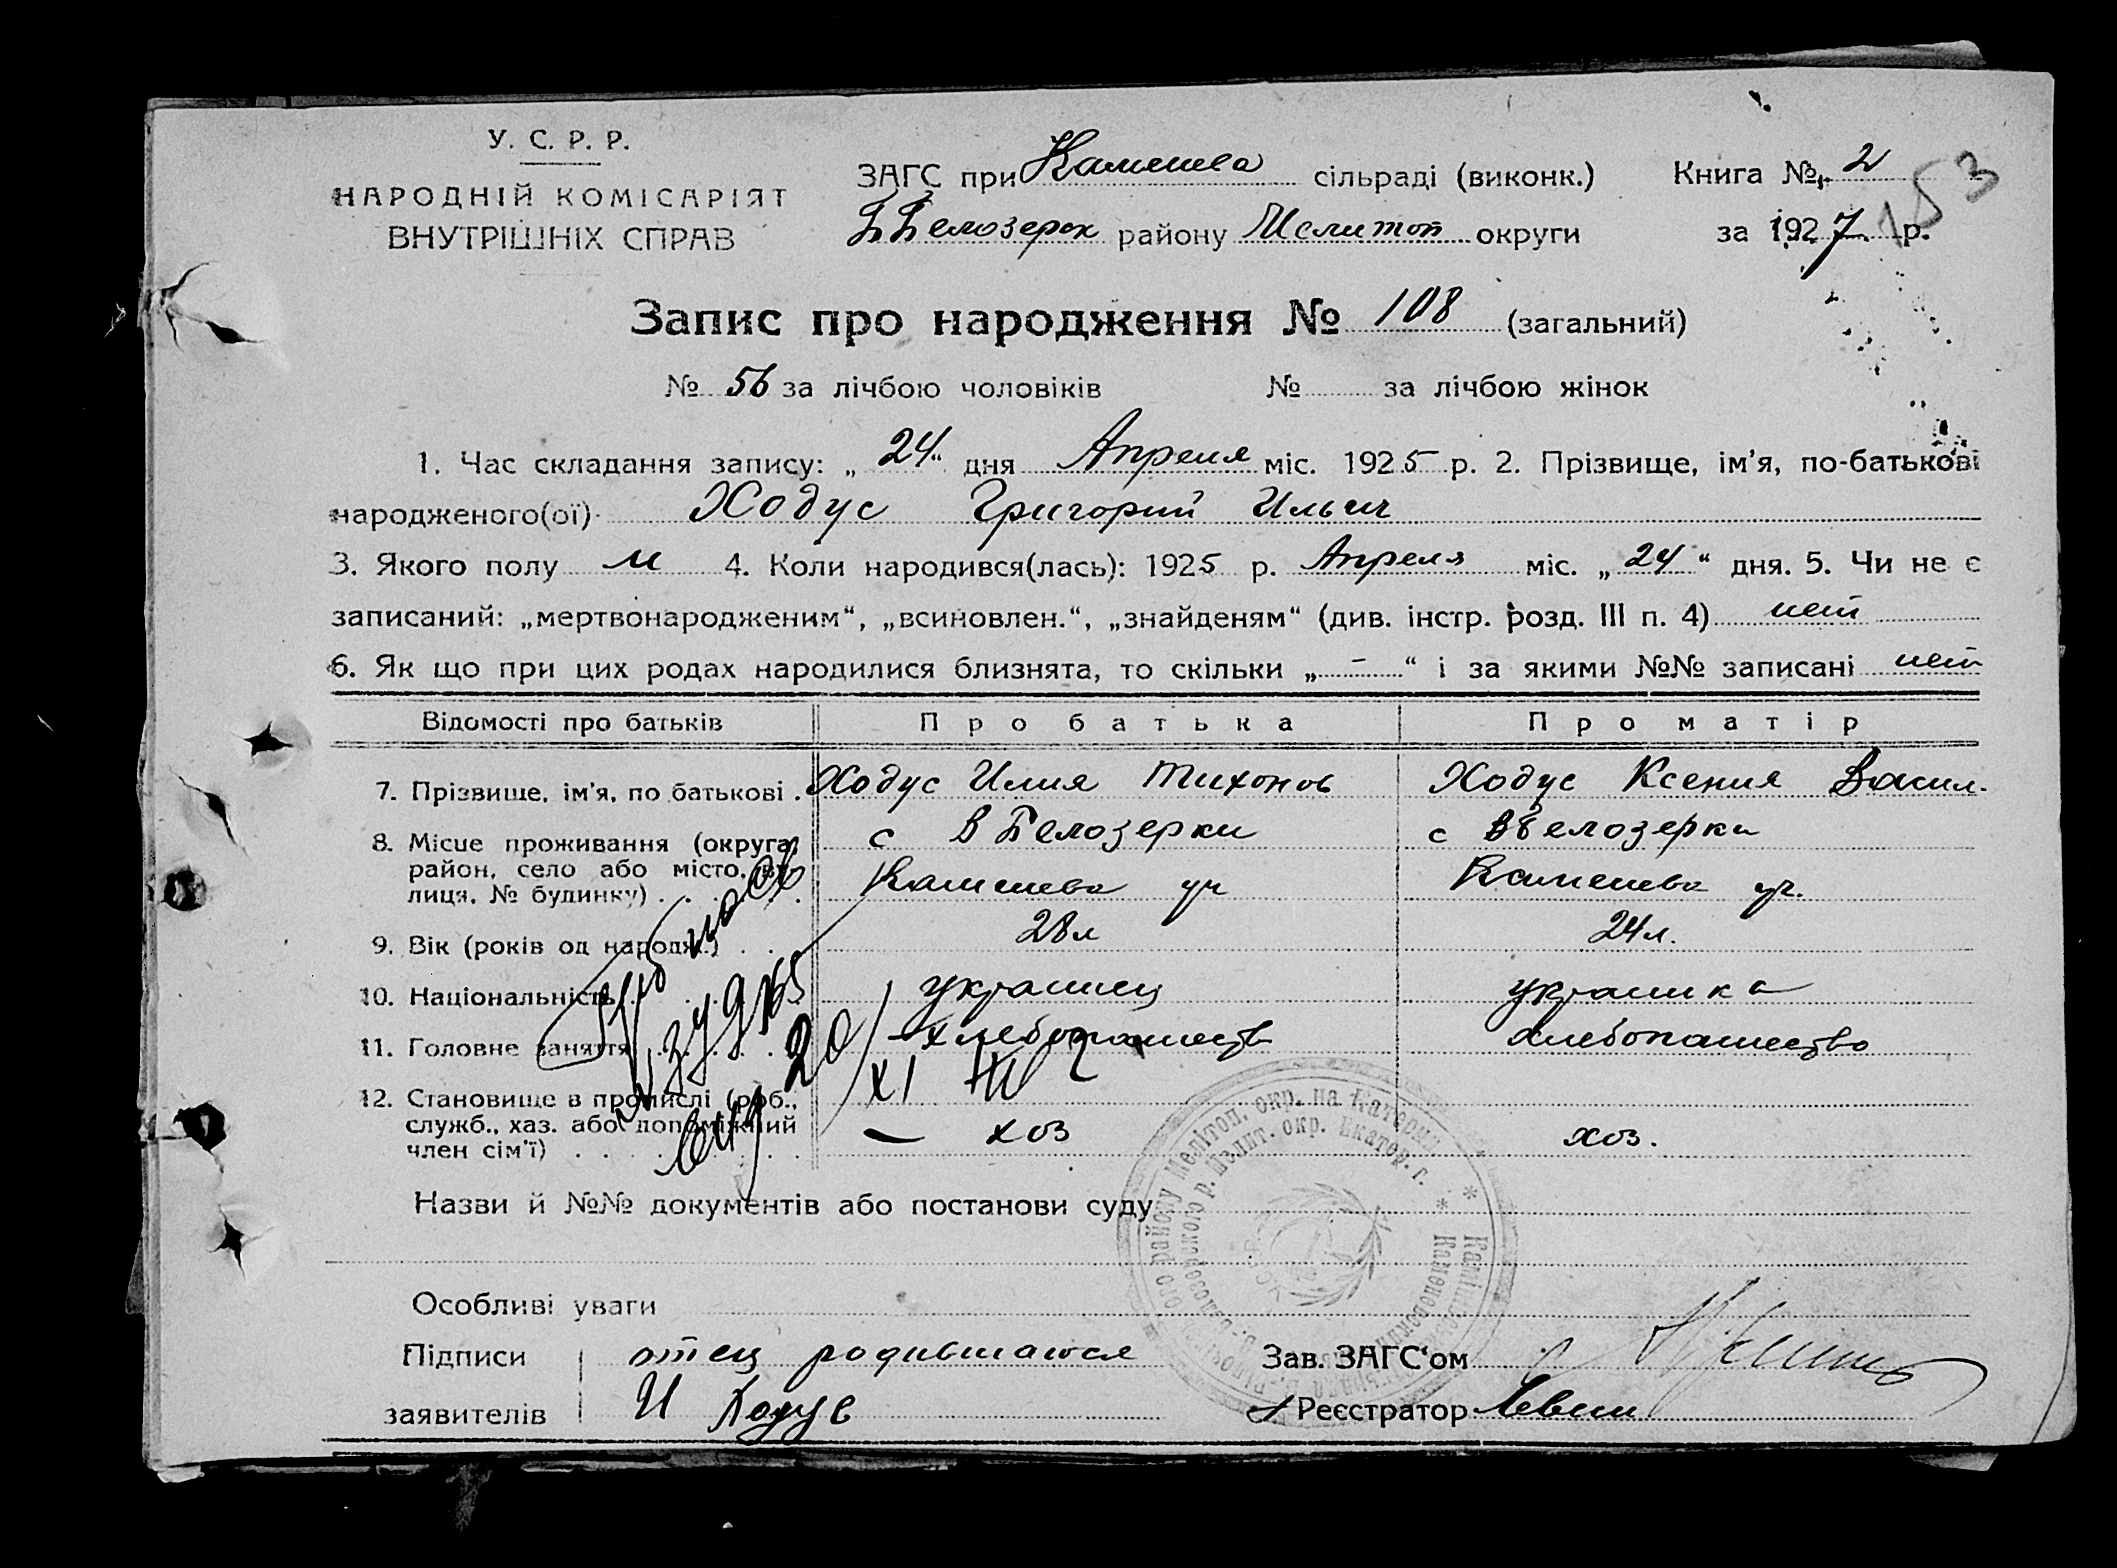 У. С. Р. Р.
НАРОДНІЙ КОМІСАРІЯТ
ВНУТРІШНІХ СПРАВ
ЗАГС при Каменева сільраді (виконк.)
Б Белозерск району Мелитоп округи
Книга № 2
за 1927 р.
153
Запис про народження № 108 (загальний)
№ 56 за лічбою чоловіків № за лічбою жінок
1. Час складання запису: „24“ дня Апреля міс. 1925 р. 2. Прізвище, ім’я, по-батькові
народженого(ої) Ходус Григорий Ильич
3. Якого полу м 4. Коли народився(лась): 1925 р. Апреля міс. „24“ дня. 5. Чи не є
записаний: „мертвонародженим“, „всиновлен.“, „знайденям“ (див. інстр. розд. III п. 4) нет
6. Як що при цих родах народилися близнята, то скільки „–“ і за якими №№ записані нет
Відомості про батьків Про батька Про матір
7. Прізвище, ім’я, по батькові . Ходус Илия Тихонов Ходус Ксения Васил.
8. Місце проживання (округа, с В Белозерки с В Белозерка
район, село або місто, ву-
лиця, № будинку) . . . Каменева уч Каменева уч.
9. Вік (років од народж.) . . 28 л 24 л.
10. Національність украинец украинка
11. Головне заняття хлебопашеств хлебопашество
20/XI
12. Становище в промислі (роб.,
служб., хаз. або допоміжний — хоз хоз.
член сім’ї) . . . .
Назви й №№ документів або постанови суду
Особливі уваги
Підписи отец родившагося Зав. ЗАГС‘ом
заявителів И Ходус Реєстратор Левен